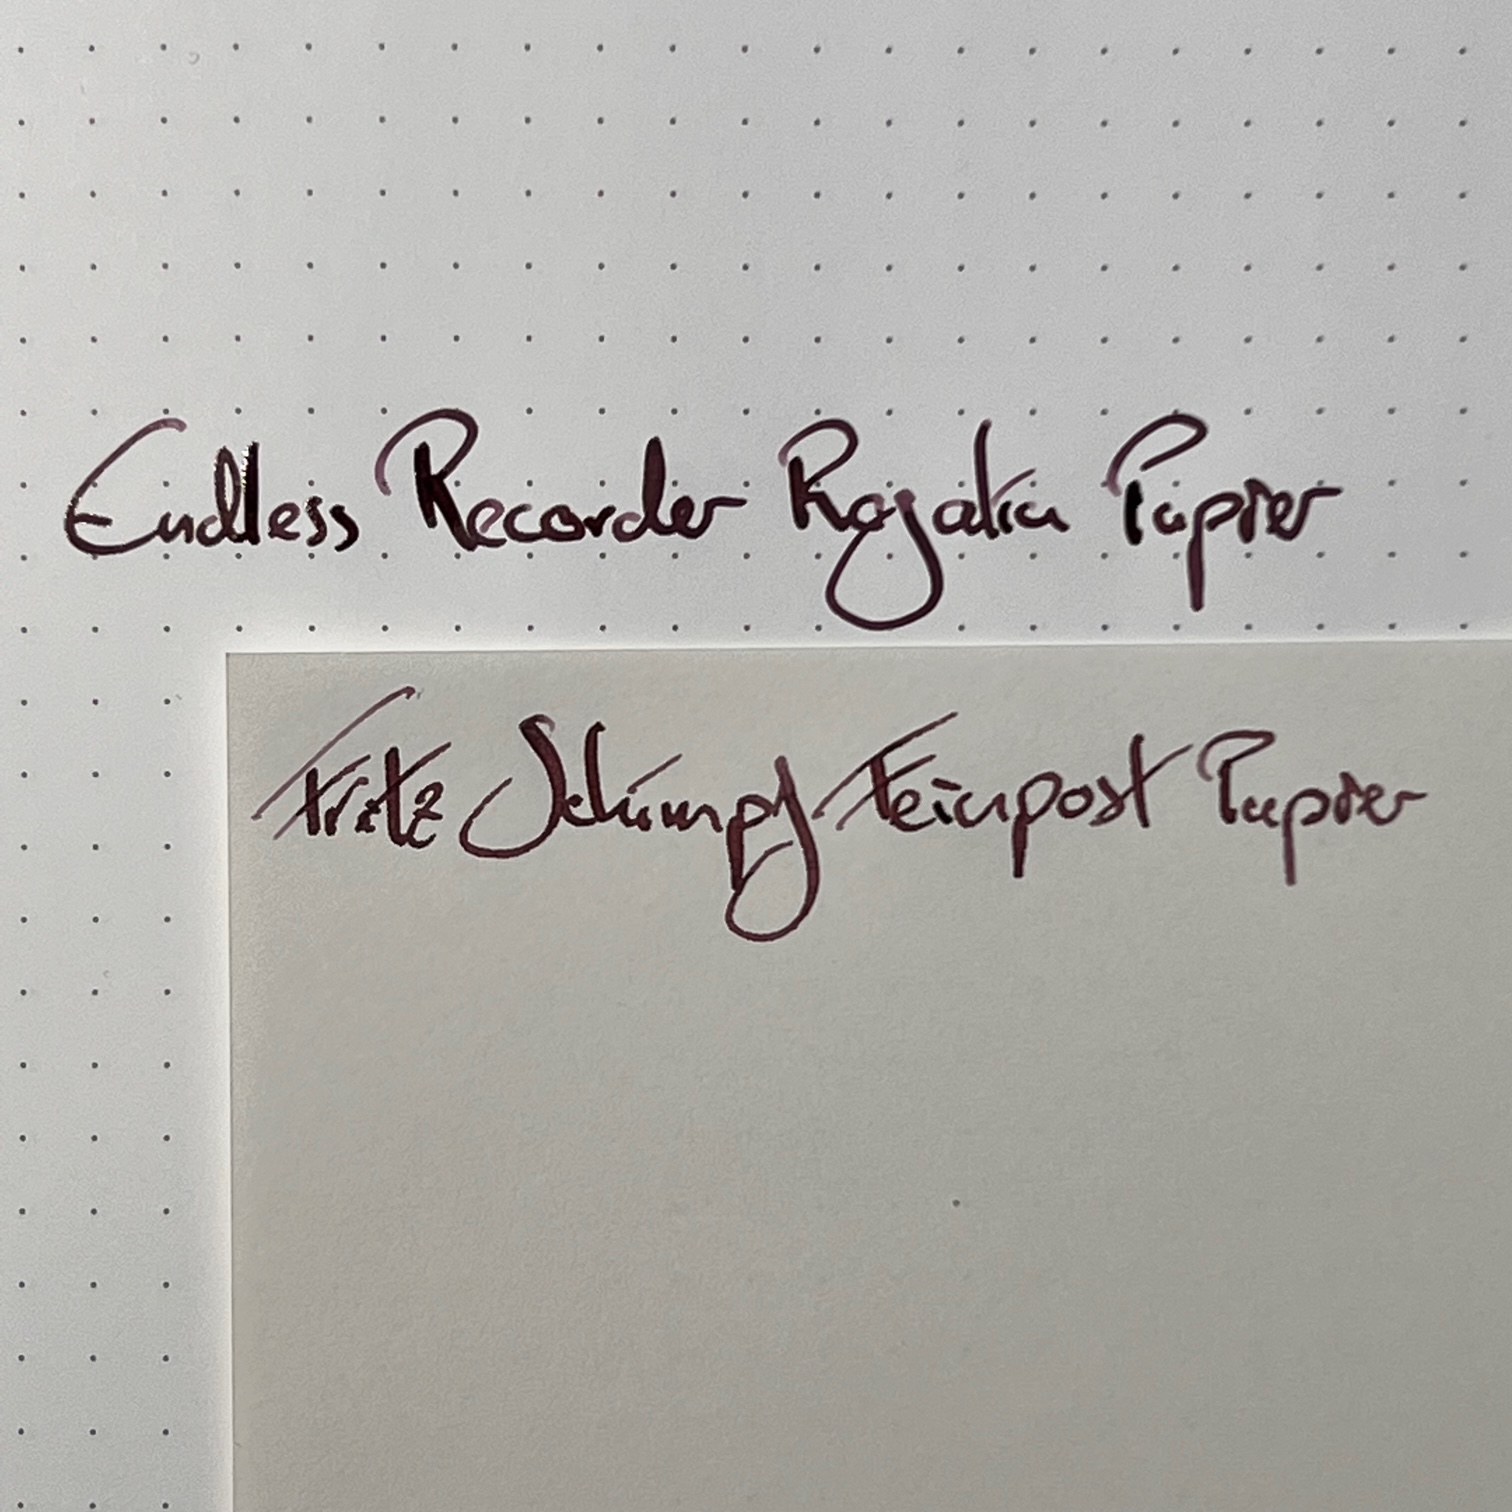 Endless Recorder Regalia Papier
Fritz Schimpf Feinpost Papier